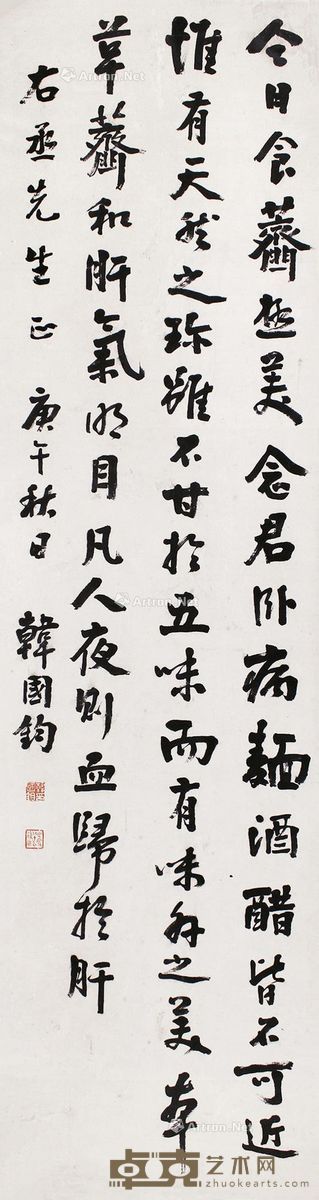 今日食薺極美念君卧病麵酒醋皆不可近
惟有天然之珍雖不甘於五味而有味外之美本
草薺和肝氣明目凡人夜則血歸於肝
右丞先生正 庚午秋日 韓國鈞
Artron.Net
卓克艺术网
www.zhuokearts.com